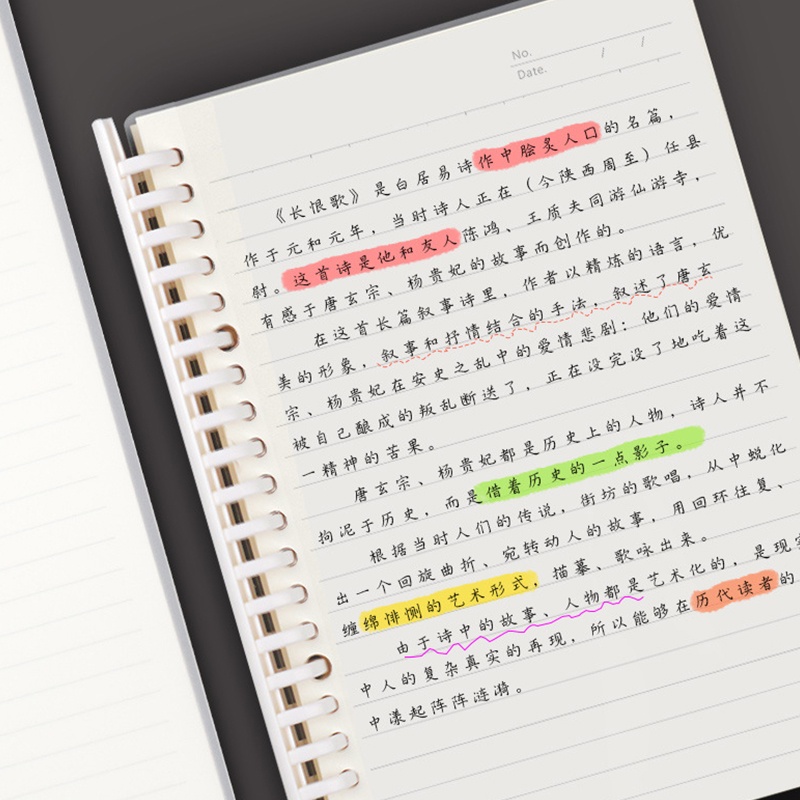 No.    /    /
Date.
《长恨歌》是白居易诗作中脍炙人口的名篇，
作于元和元年，当时诗人正在（今陕西周至）任县
尉。这首诗是他和友人陈鸿、王质夫同游仙游寺，
有感于唐玄宗、杨贵妃的故事而创作的。
在这首长篇叙事诗里，作者以精炼的语言，优
美的形象，叙事和抒情结合的手法，叙述了唐玄
宗、杨贵妃在安史之乱中的爱情悲剧：他们的爱情
被自己酿成的叛乱断送了，正在没完没了地吃着这
一精神的苦果。
唐玄宗、杨贵妃都是历史上的人物，诗人并不
拘泥于历史，而是借着历史的一点影子。
根据当时人们的传说，街坊的歌唱，从中蜕化
出一个回旋曲折、宛转动人的故事，用回环往复、
缠绵悱恻的艺术形式，描摹、歌咏出来。
由于诗中的故事、人物都是艺术化的，是现实
中人的复杂真实的再现，所以能够在历代读者的
中漾起阵阵涟漪。